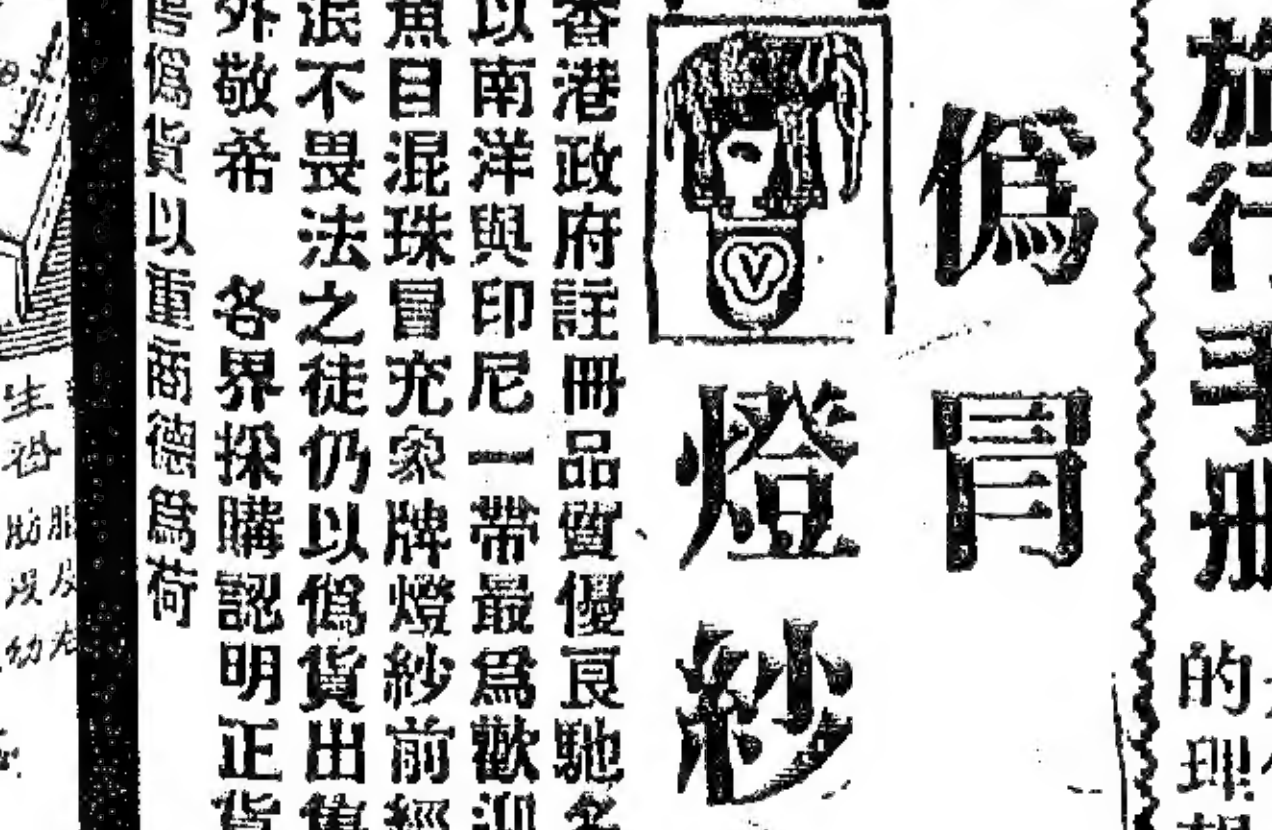 旅行手册
的理想
偽冒
燈紗
V
香港政府註冊品質優良馳名
以南洋與印尼一帶最爲歡迎
魚目混珠冒充象牌燈紗前經
泯不畏法之徒仍以僞貨出售
外敬希　各界採購認明正貨
僞貨以重商德爲荷
生